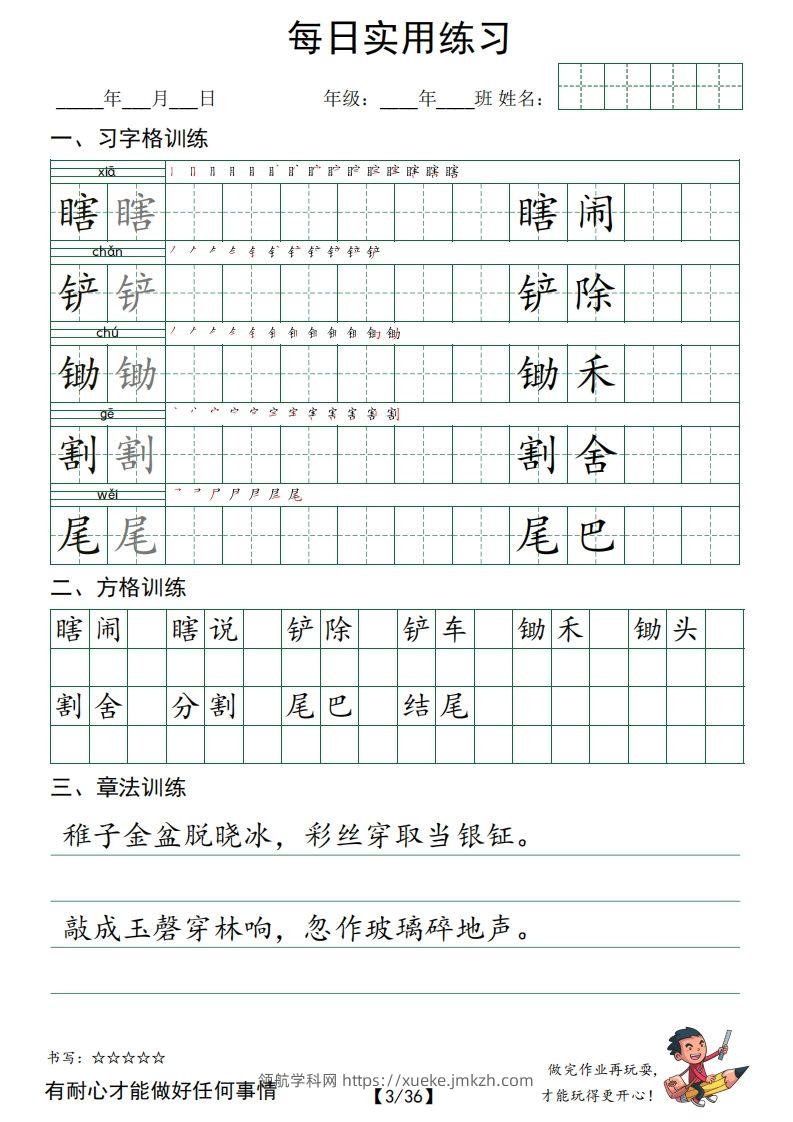 每日实用练习
_____年___月___日 年级：____年____班 姓名：
一、习字格训练
xiā
瞎 瞎 瞎 闹
chǎn
铲 铲 铲 除
chú
锄 锄 锄 禾
gē
割 割 割 舍
wěi
尾 尾 尾 巴
二、方格训练
瞎 闹 瞎 说 铲 除 铲 车 锄 禾 锄 头
割 舍 分 割 尾 巴 结 尾
三、章法训练
稚子金盆脱晓冰，彩丝穿取当银钲。
敲成玉磬穿林响，忽作玻璃碎地声。
书写：☆☆☆☆☆
有耐心才能做好任何事情
领航学科网 https://xueke.jmkzh.com
【3/36】
做完作业再玩耍，
才能玩得更开心！